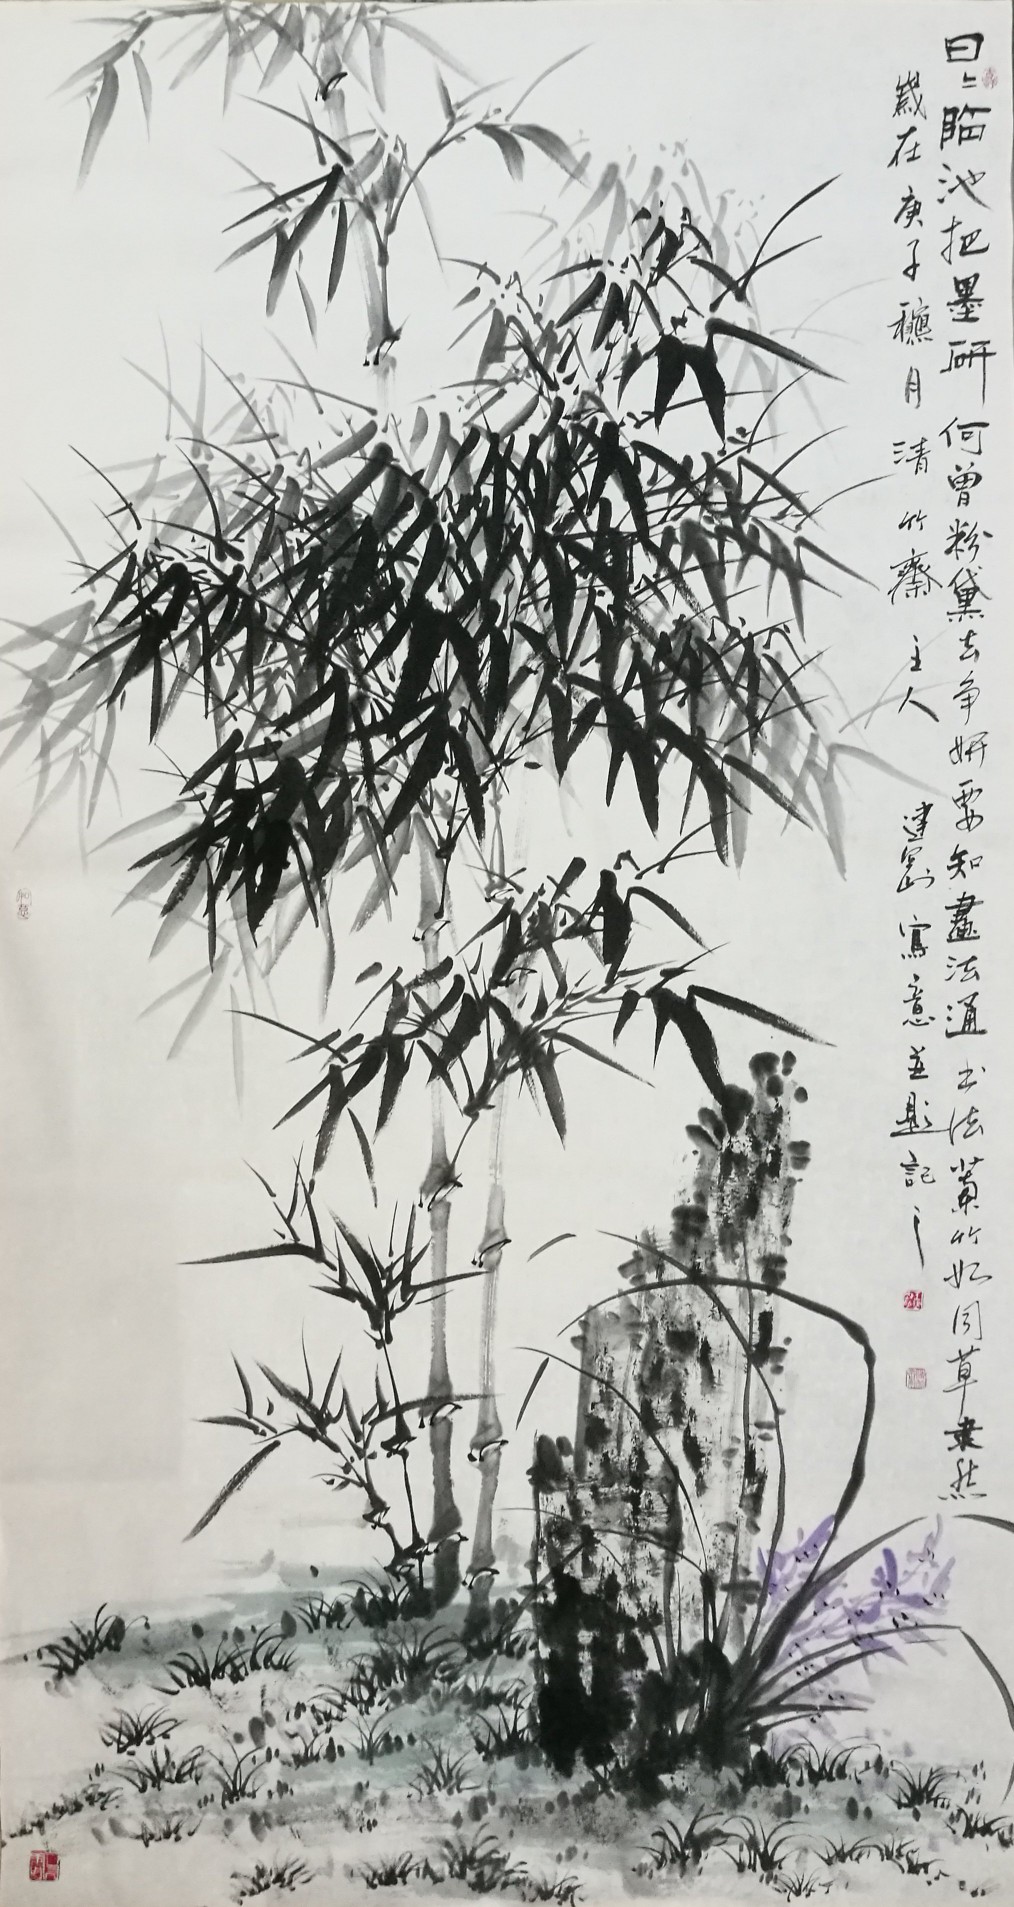 日〻临池把墨研何曾粉黛去争妍要知畫法通书法蘭竹如同草隶然
歲在庚子穐月清竹齋主人建剛寫意並題記之